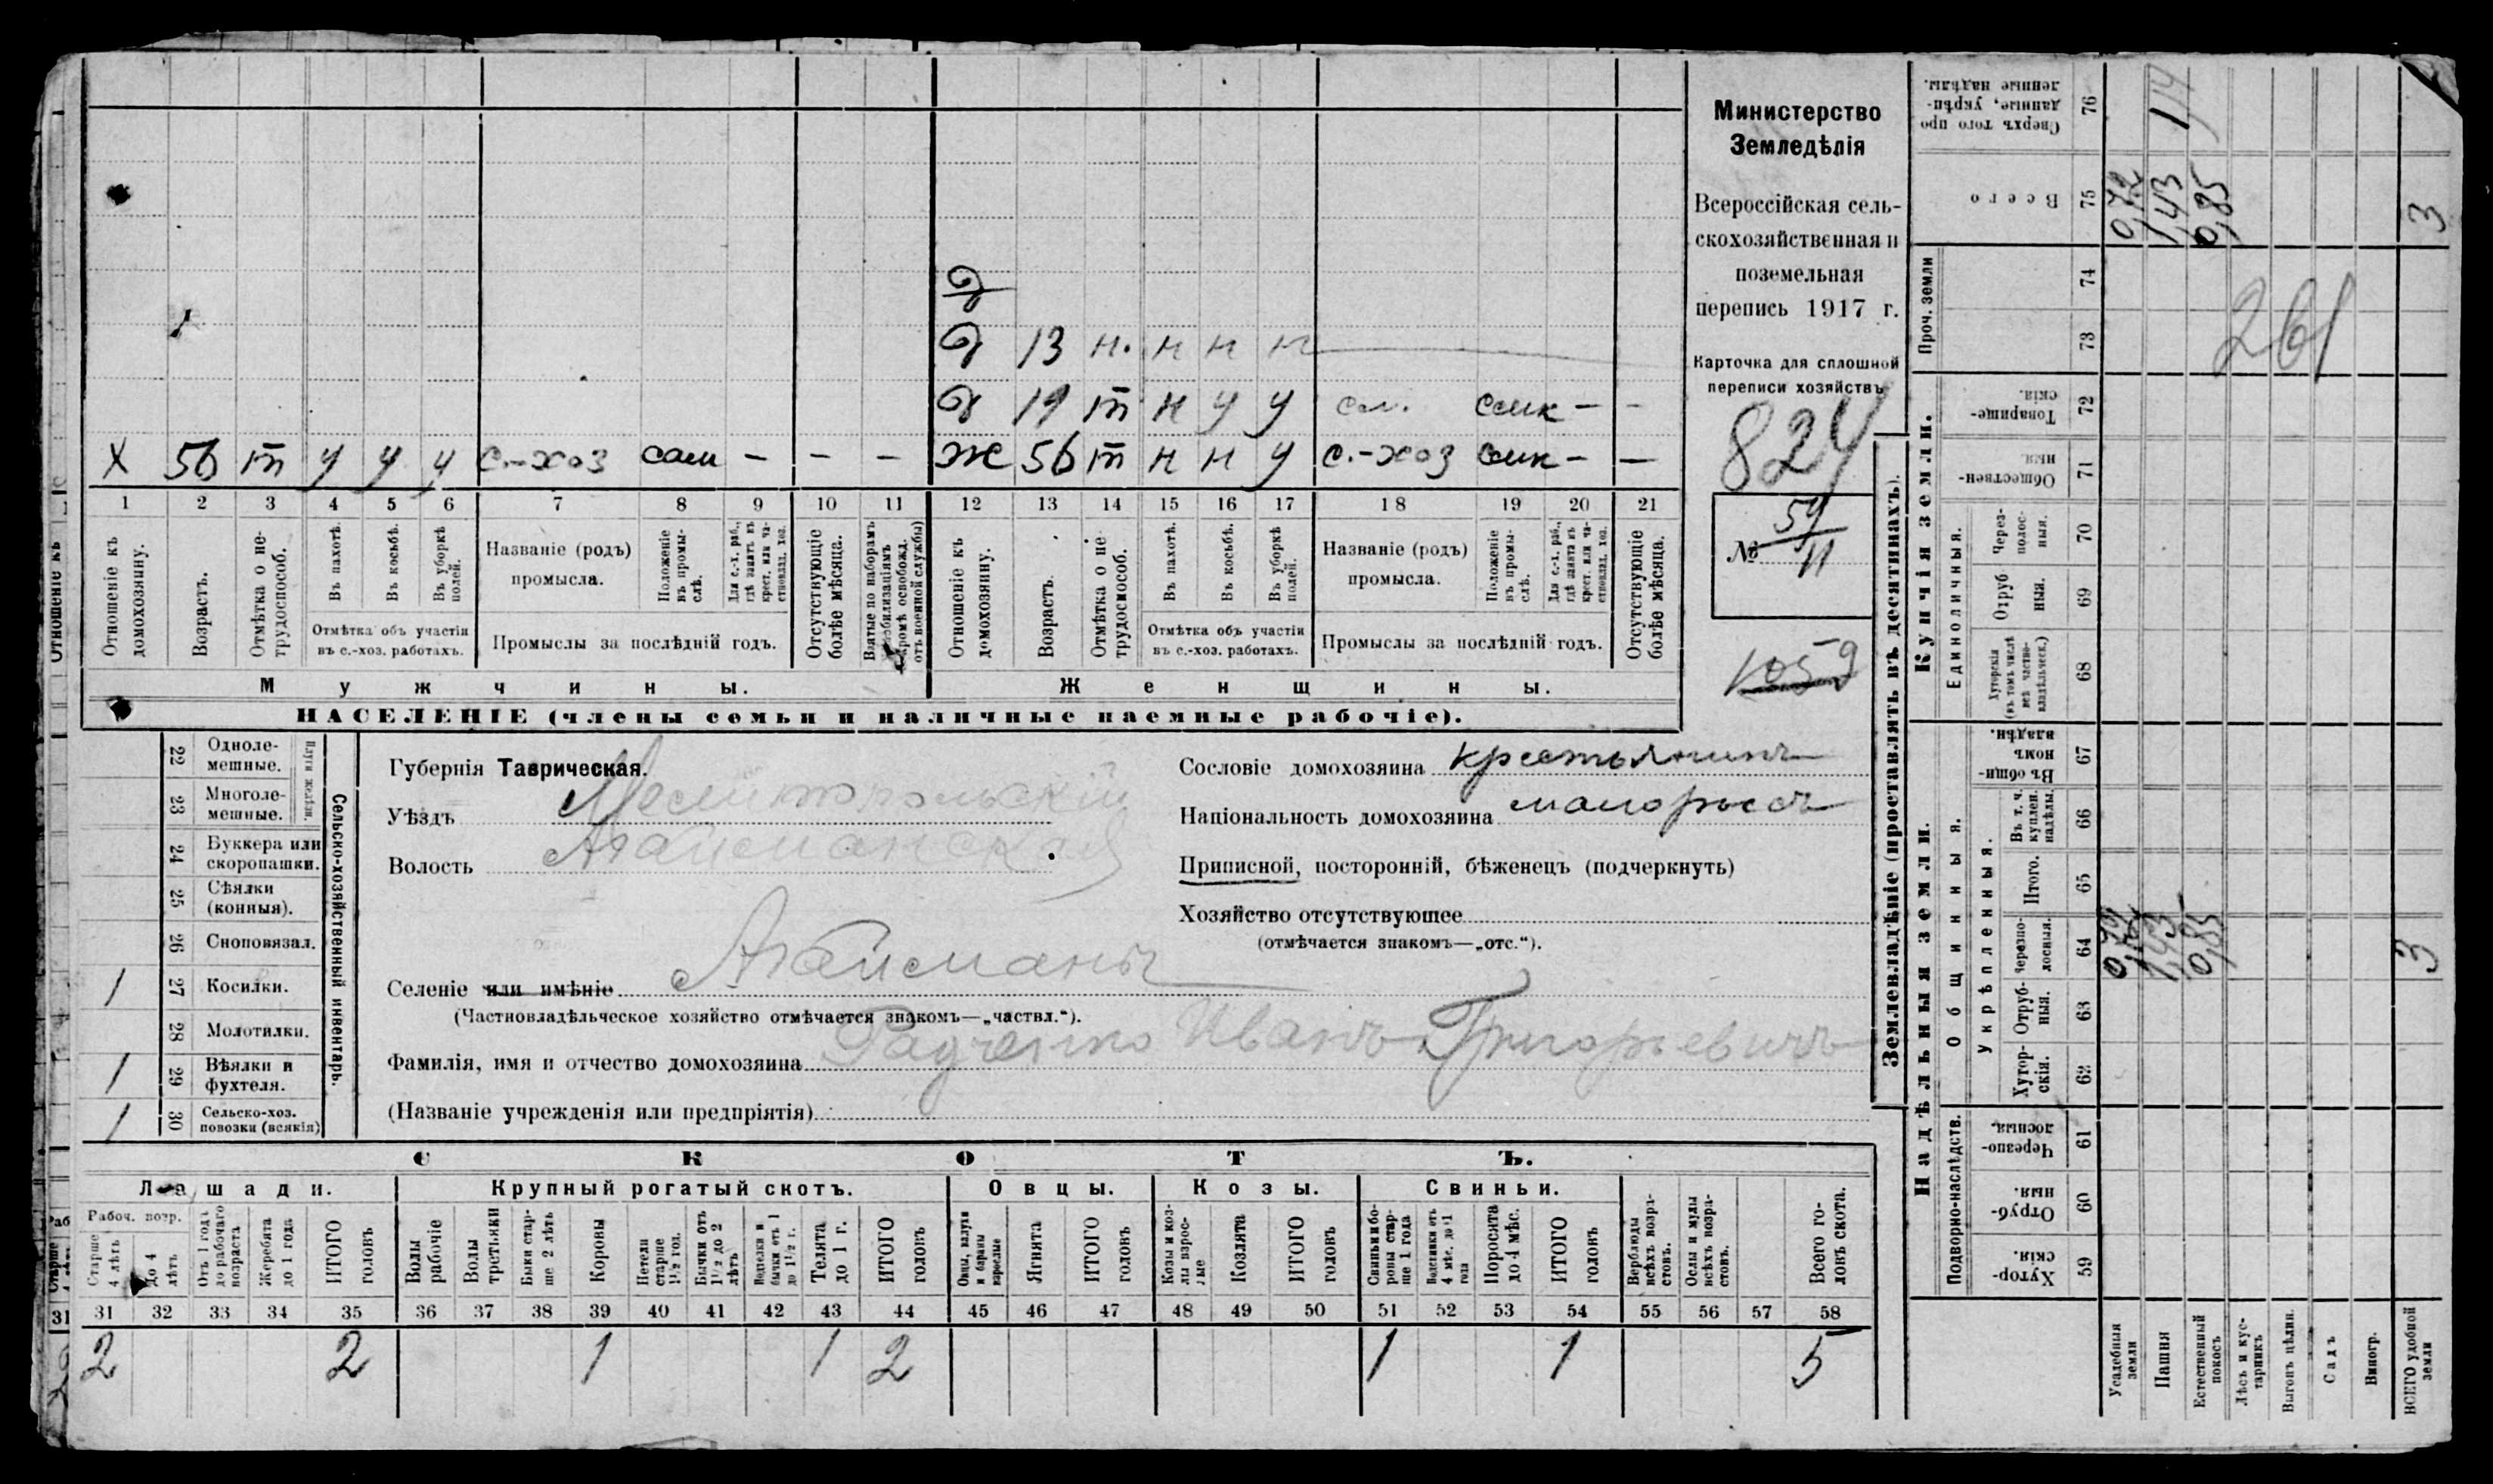 Министерство
Земледѣлія
Всероссійская сель-
скохозяйственная и
поземельная
перепись 1917 г.
Карточка для сплошной
переписи хозяйствъ
824
№ 59/11
1059
д
д 13 н. н н н
д 19 т н у у сам. —
Х 56 т у у у с.-хоз сам — — — ж 56 т н н у с.-хоз — —
1 2 3 4 5 6 7 8 9 10 11 12 13 14 15 16 17 18 19 20 21
Отношеніе къ домохозяину.
Возрастъ.
Отмѣтка о не-трудоспособ.
Въ пахотѣ.
Въ косьбѣ.
Въ уборкѣ полей.
Отмѣтка объ участіи
въ с.-хоз. работахъ.
Названіе (родъ)
промысла.
Положеніе въ промы-слѣ.
Для с.-х. раб., гдѣ занятъ въ крест. или ча-стновлад. хоз.
Промыслы за послѣдній годъ.
Отсутствующіе болѣе мѣсяца.
Взятые по наборамъ и мобилизаціямъ (кромѣ освобожд. отъ военной службы)
Отношеніе къ домохозяину.
Возрастъ.
Отмѣтка о не-трудоспособ.
Въ пахотѣ.
Въ косьбѣ.
Въ уборкѣ полей.
Отмѣтка объ участіи
въ с.-хоз. работахъ.
Названіе (родъ)
промысла.
Положеніе въ промы-слѣ.
Для с.-х. раб., гдѣ занята въ крест. или ча-стновлад. хоз.
Промыслы за послѣдній годъ.
Отсутствующіе болѣе мѣсяца.
Мужчины. Женщины.
НАСЕЛЕНІЕ (члены семьи и наличные наемные рабочіе).
22 Одноле-мешные.
23 Многоле-мешные.
24 Буккера или скоропашки.
25 Сѣялки (конныя).
26 Сноповязал.
1 27 Косилки.
28 Молотилки.
1 29 Вѣялки и фухтеля.
1 30 Сельско-хоз. повозки (всякія)
Сельско-хозяйственный инвентарь.
Губернія Таврическая.
Уѣздъ Мелитопольскій
Волость Агайманская
Селеніе или имѣніе Агайманъ
(Частновладѣльческое хозяйство отмѣчается знакомъ—„частвл.“).
Фамилія, имя и отчество домохозяина Радченко Иванъ Григорьевичъ
(Названіе учрежденія или предпріятія)
Сословіе домохозяина крестьянинъ
Національность домохозяина малороссъ
Приписной, посторонній, бѣженецъ (подчеркнуть)
Хозяйство отсутствующее
(отмѣчается знакомъ—„отс.“).
СКОТЪ.
Лошади. Крупный рогатый скотъ. Овцы. Козы. Свиньи.
Рабоч. возр.
Старше 4 лѣтъ
До 4 лѣтъ
Отъ 1 года до рабочаго возраста
Жеребята до 1 года
ИТОГО головъ
Волы рабочіе
Волы третьяки
Быки стар-ше 2 лѣтъ
Коровы
Нетели старше 1½ год.
Бычки отъ 1½ до 2 лѣтъ
Телки и бычки отъ 1 до 1½ г.
Телята до 1 г.
ИТОГО головъ
Овцы, валухи и бараны взрослые
Ягнята
ИТОГО головъ
Козы и коз-лы взрос-лые
Козлята
ИТОГО головъ
Свиньи и бо-ровы стар-ше 1 года
Подсвинки отъ 4 мѣс. до 1 года
Поросята до 4 мѣс.
ИТОГО головъ
Верблюды всѣхъ возра-стовъ.
Ослы и мулы всѣхъ возра-стовъ.
Всего го-ловъ скота.
31 32 33 34 35 36 37 38 39 40 41 42 43 44 45 46 47 48 49 50 51 52 53 54 55 56 57 58
2 2 1 1 2 1 1 5
Землевладѣніе (проставлять въ десятинахъ).
Надѣльныя земли. Купчія земли. Проч. земли
Подворно-наслѣдств. Общинныя. Укрѣпленныя. Единоличныя.
Хутор-скія. 59
Отруб-ныя. 60
Черезпо-лосныя. 61
Хутор-скія. 62
Отруб-ныя. 63
Черезпо-лосныя. 64
Итого. 65
Въ т. ч. куплен. надѣлы. 66
Въ общин-номъ владѣн. 67
Хуторскія (въ томъ числѣ всѣ частно-владѣльческ.) 68
Отруб-ныя. 69
Через-полос-ныя. 70
Обществен-ныя. 71
Товарище-скія. 72
73
74
Всего 75
Сверхъ того про-данные, укрѣп-ленные надѣлы. 76
Усадебныя земли 0,72
Пашня 1,43 1,43 114
Естественный покосъ 0,85 0,85
Лѣсъ и кус-тарникъ
Выгонъ цѣлин.
Садъ
Виногр.
ВСЕГО удобной земли 3 3
261